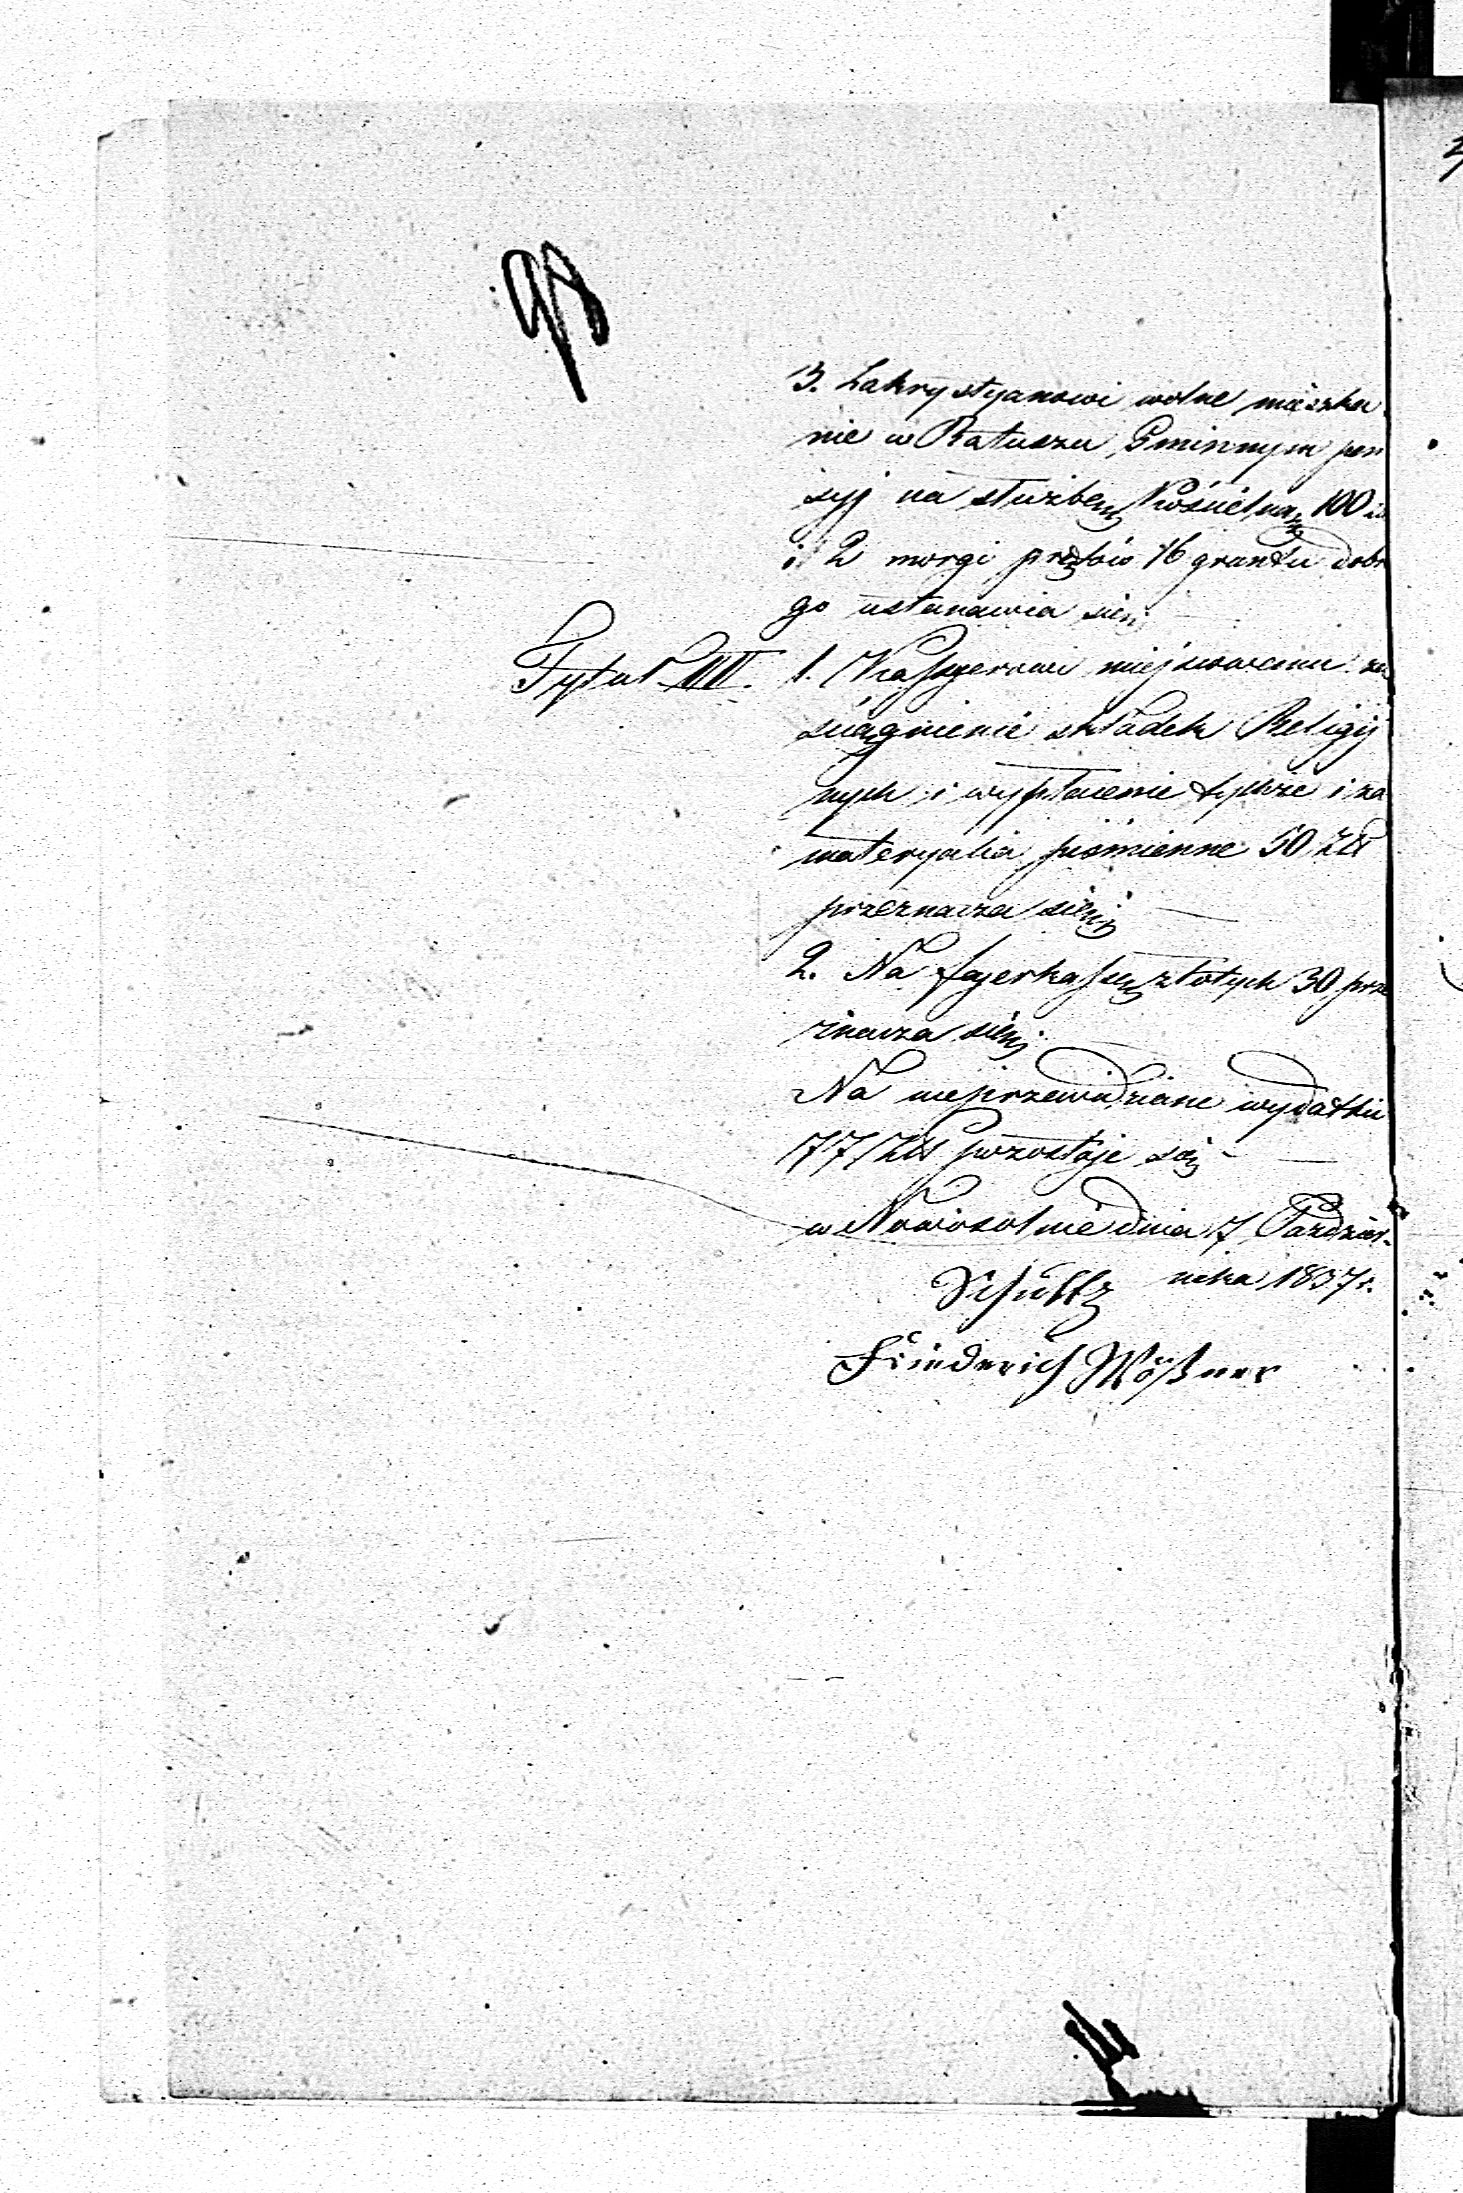 3. Zakrystyanowi wolne mieszka
nie w Ratuszu Gminnym pen
syj na służbem Kościelną 100
i 2 morgi prętów 16 gruntu dobr
go ustanawia sien
Tytuł IIII. 1. Kassyerowi miejscowemu za
sciągnienie składek Religij
nych i wypłacenie tychże i za
materyalia piśmienne 50 Złł
przeznacza sien
2. Na fajerkassen złotych 30 prze
znacza sien
Na nieprzewidziane wydatki
77 Złł pozostaje się
w Nowosolnie dnia 7 Paździer-
nika 1837 r.
Schultz
Friederich Mößner